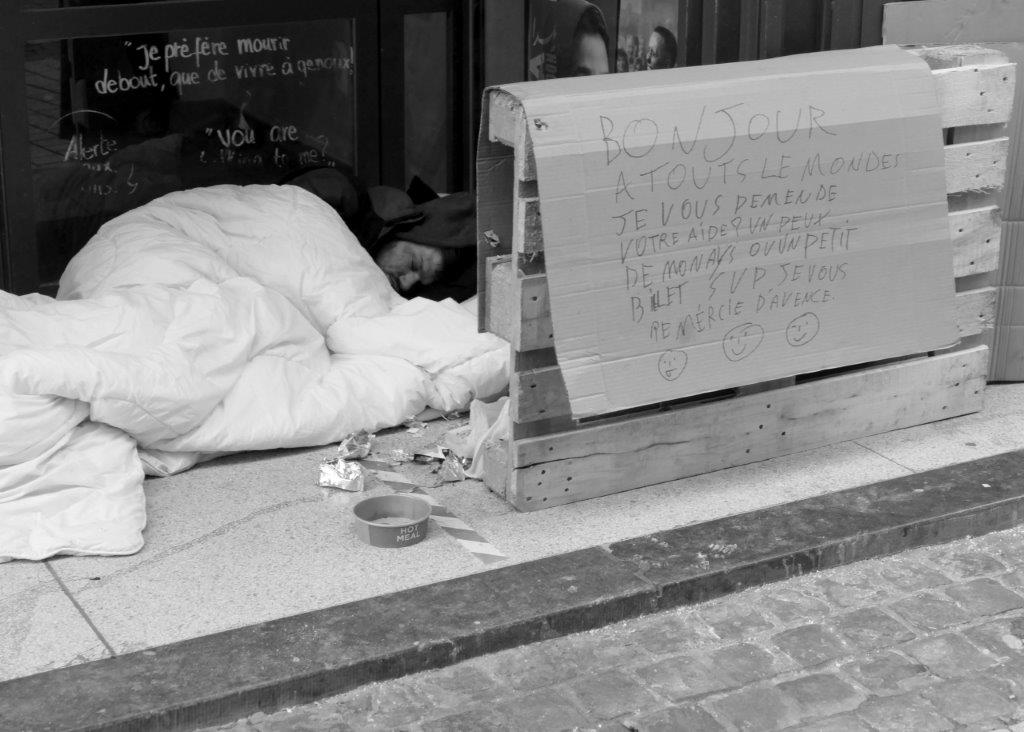 "Je préfère mourir
debout, que de vivre à genoux!
Alerte
"You are
to me?"
BONJOUR
A TOUTS LE MONDES
JE VOUS DEMENDE
VOTRE AIDE? UN PEUX
DE MONAYS OU UN PETIT
BILLET SVP JE VOUS
REMERCIE D'AVENCE.
HOT
MEAL